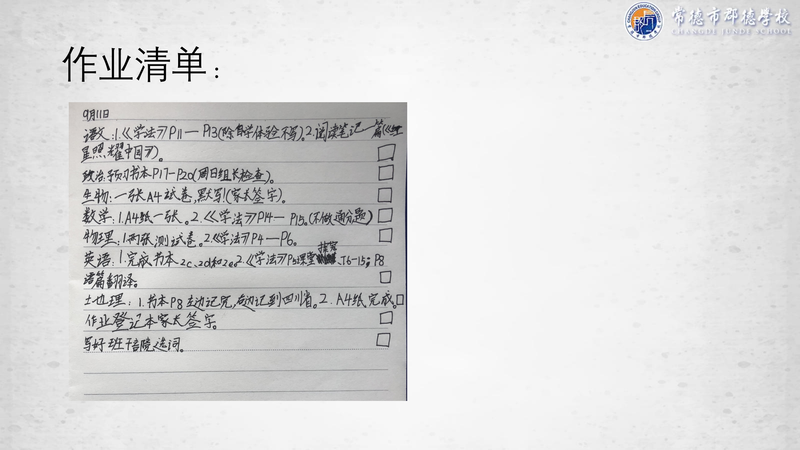 常德市郡德学校
CHANGDE JUNDE SCHOOL
作业清单：
9月11日
语文:1.《学法》P11—P13(除自学体验不写)。2.阅读笔记一篇(《红
星照耀中国》)。
政治:预习书本P17-P20(周日组长检查)。
生物:一张A4试卷,默写(家长签字)。
数学:1.A4纸一张。2.《学法》P14—P15。(不做满分题)
物理:1.两张测试卷。2.《学法》P4—P6。
英语:1.完成书本2c、2d和2e。2.《学法》P5课堂、T6-15;P8
语篇翻译。
地理:1.书本P8左边记完,右边记到四川省。2.A4纸完成。
作业登记本家长签字。
写好班干部竞选词。